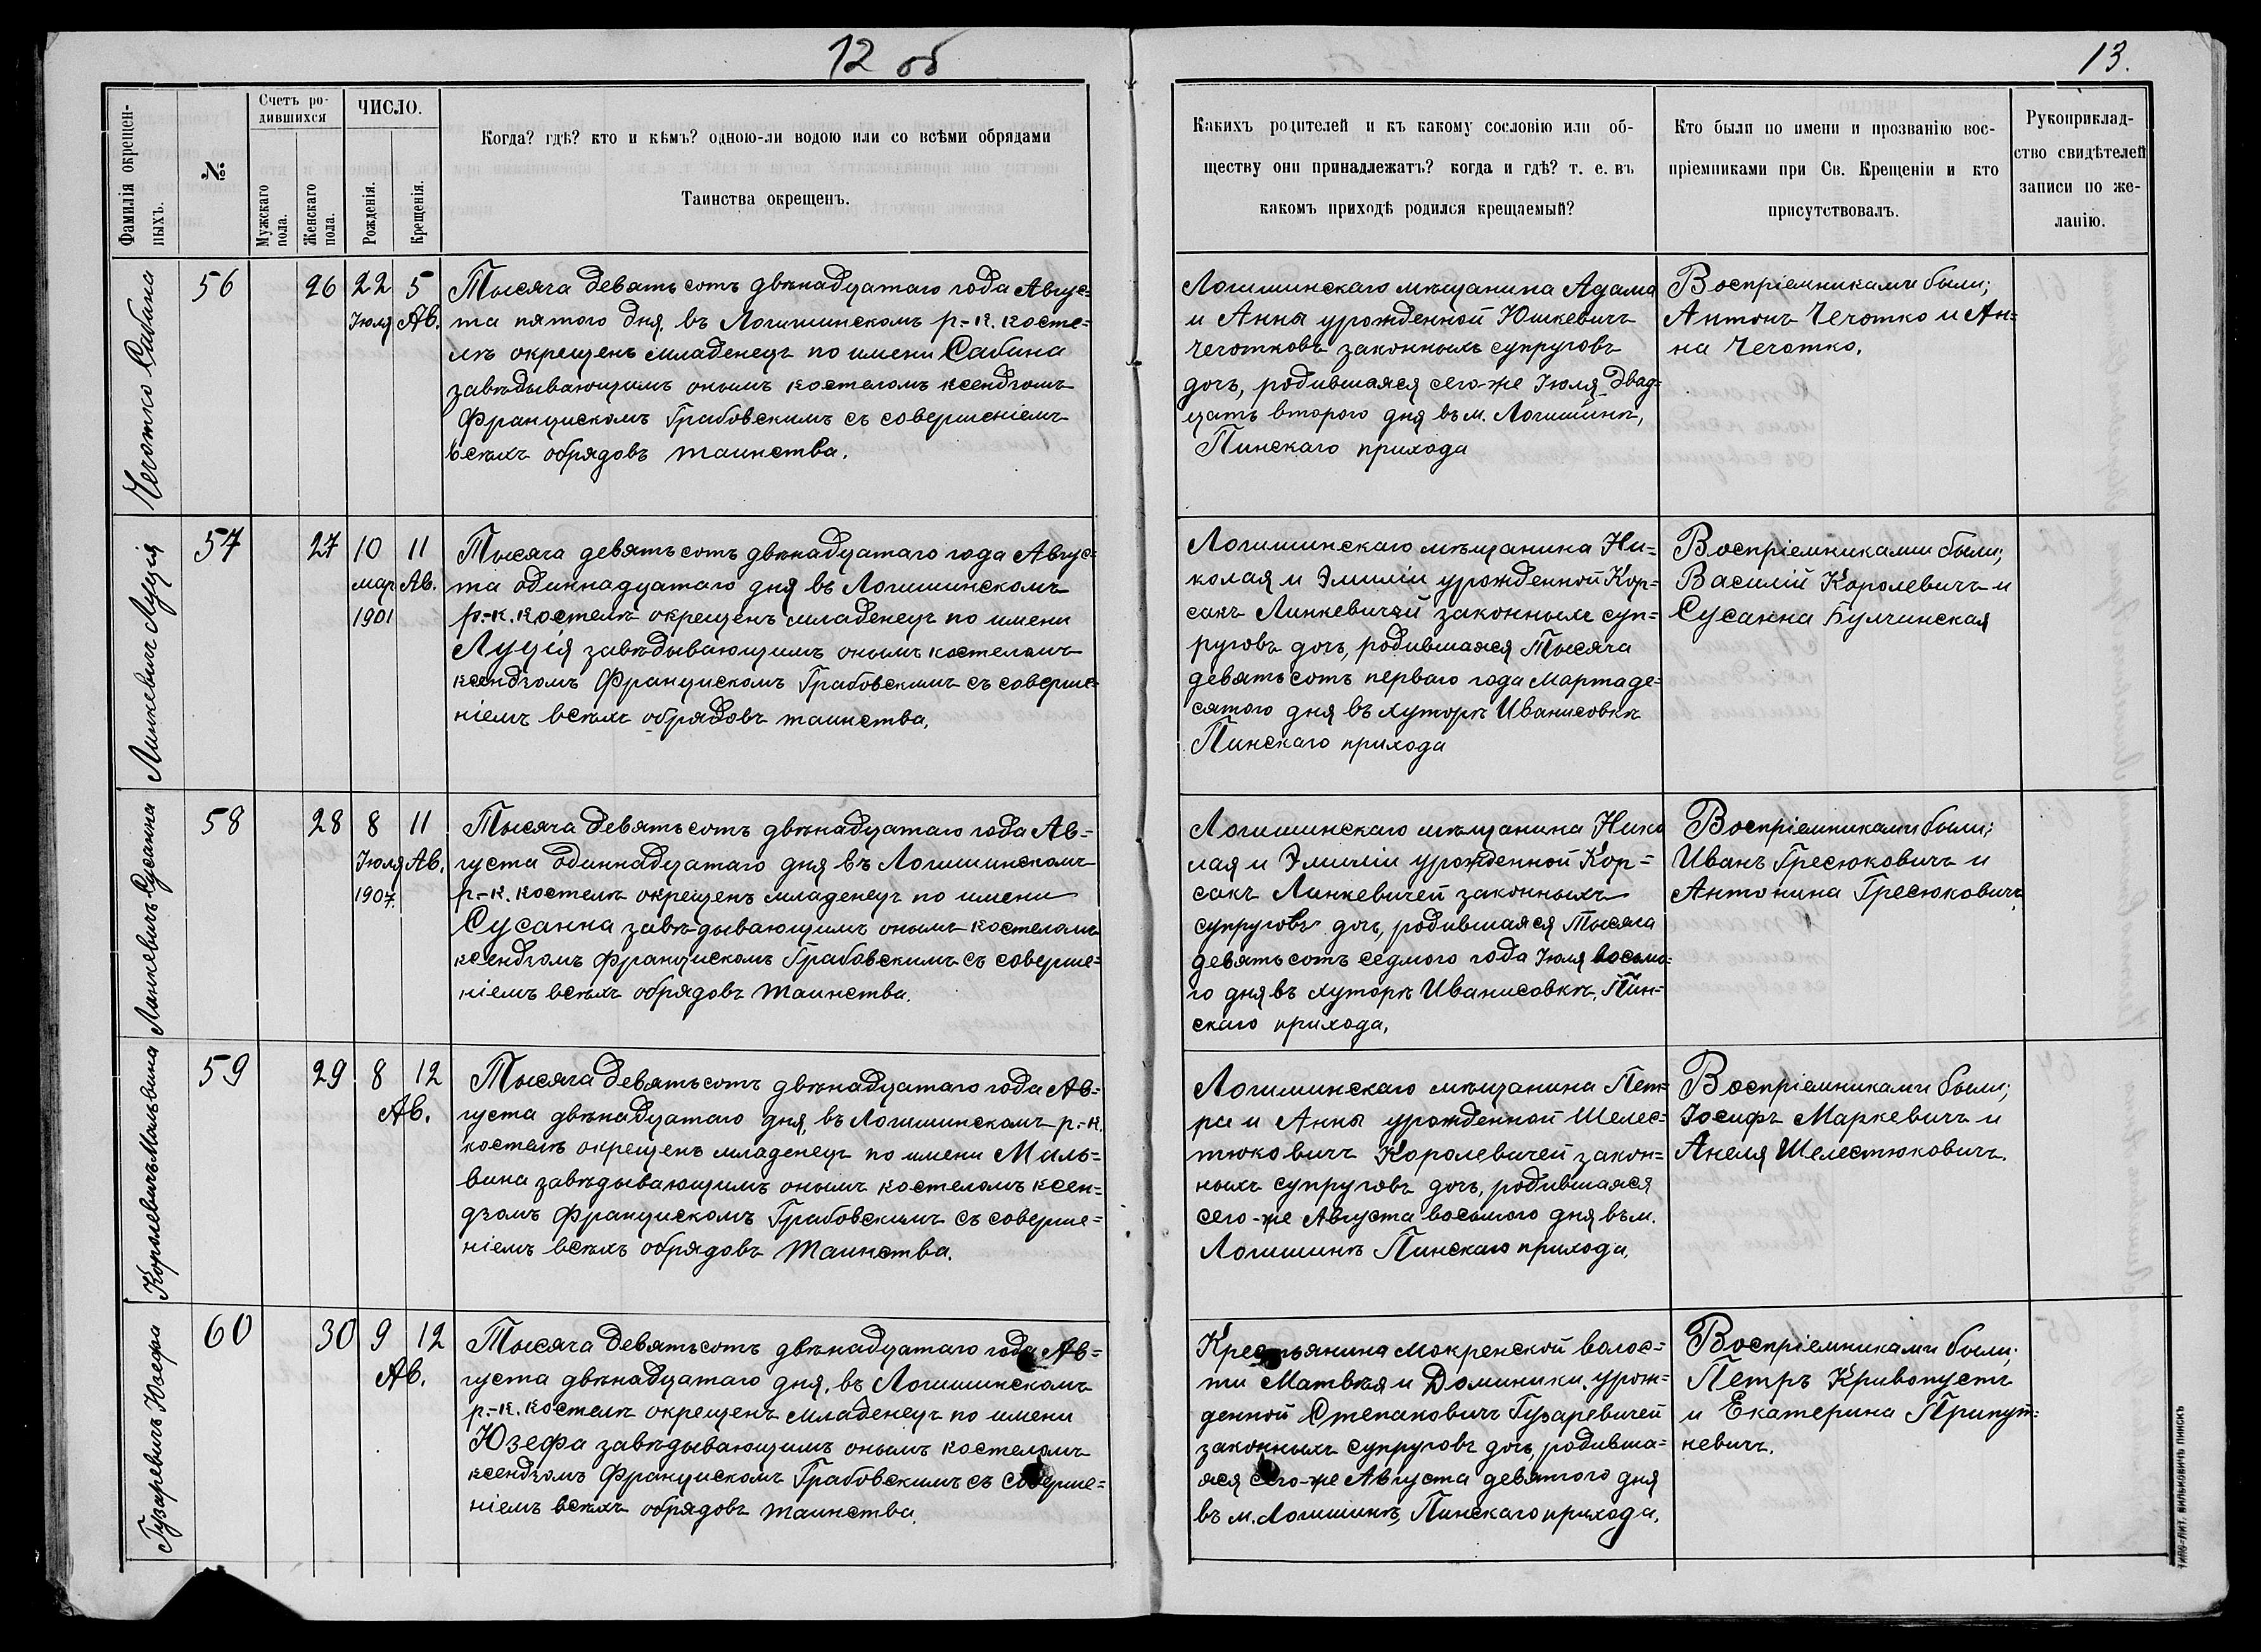 12 об
13.
Фамилія окрещен-
ныхъ.
№
Счетъ ро-
дившихся
Мужскаго
пола.
Женскаго
пола.
ЧИСЛО.
Рожденія.
Крещенія.
Когда? гдѣ? кто и кѣмъ? одною-ли водою или со всѣми обрядами
Таинства окрещенъ.
Какихъ родителей и къ какому сословію или об-
ществу они принадлежатъ? когда и гдѣ? т. е. въ
какомъ приходѣ родился крещаемый?
Кто были по имени и прозванію вос-
пріемниками при Св. Крещеніи и кто
присутствовалъ.
Рукоприклад-
ство свидѣтелей
записи по же-
ланію.
Чечотко Сабина
56
26
22
Іюля
5
Ав.
Тысяча девятьсотъ двѣнадцатаго года Авгус=
та пятого дня, въ Логишинскомъ р.-к. косте=
лѣ окрещенъ младенецъ по имени Сабина
завѣдывающимъ онымъ костеломъ ксендзомъ
Францискомъ Грабовскимъ съ совершеніемъ
всѣхъ обрядовъ таинства.
Логишинскаго мѣщанина Адама
и Анны урожденной Юшкевичъ
Чечотковъ законныхъ супруговъ
дочь, родившаяся сего-же Іюля двад=
цать второго дня въ м. Логишинѣ,
Пинскаго прихода
Воспріемниками были;
Антонъ Чечотко и Ан=
на Чечотко.
Линкевичъ Луція
57
27
10
мар.
1901
11
Ав.
Тысяча девятьсотъ двѣнадцатаго года Авгус=
та одиннадцатаго дня въ Логишинскомъ
р.-к. костелѣ окрещенъ младенецъ по имени
Луція завѣдывающимъ онымъ костеломъ
ксендзомъ Францискомъ Грабовскимъ съ соверше=
ніемъ всѣхъ обрядовъ таинства.
Логишинскаго мѣщанина Ни=
колая и Эмиліи урожденной Кор=
сакъ Линкевичей законныхъ суп=
руговъ дочь, родившаяся Тысяча
девятьсотъ перваго года Марта де=
сятого дня въ хуторѣ Иванисовкѣ
Пинскаго прихода
Воспріемниками были;
Василій Королевичъ и
Сусанна Булчинская
Линкевичъ Сусанна
58
28
8
Іюля
1907.
11
Ав.
Тысяча девятьсотъ двѣнадцатаго года Ав=
густа одиннадцатаго дня въ Логишинскомъ
р.-к. костелѣ окрещенъ младенецъ по имени
Сусанна завѣдывающимъ онымъ костеломъ
ксендзомъ Францискомъ Грабовскимъ съ соверше=
ніемъ всѣхъ обрядовъ таинства.
Логишинскаго мѣщанина Нико
лая и Эмиліи урожденной Кор=
сакъ Линкевичей законныхъ
супруговъ дочь, родившаяся Тысяча
девятьсотъ седмого года Іюля восьмо=
го дня въ хуторѣ Иванисовкѣ, Пин=
скаго прихода.
Воспріемниками были;
Иванъ Гресюковичъ и
Антонина Гресюковичъ.
Королевичъ Мальвина
59
29
8
12
Ав.
Тысяча девятьсотъ двѣнадцатаго года Ав=
густа двѣнадцатаго дня, въ Логишинскомъ р.-к.
костелѣ окрещенъ младенецъ по имени Маль=
вина завѣдывающимъ онымъ костеломъ ксен=
дзомъ Францискомъ Грабовскимъ съ соверше=
ніемъ всѣхъ обрядовъ таинства.
Логишинскаго мѣщанина Пет=
ра и Анны урожденной Шелес=
тюковичъ Королевичей закон=
ныхъ супруговъ дочь, родившаяся
сего-же Августа восьмого дня въ м.
Логишинѣ Пинскаго прихода.
Воспріемниками были;
Іосифъ Маркевичъ и
Анеля Шелестюковичъ.
Гузаревичъ Юзефа
60
30
9
12
Ав.
Тысяча девятьсотъ двѣнадцатаго года Ав=
густа двѣнадцатаго дня, въ Логишинскомъ
р.-к. костелѣ окрещенъ младенецъ по имени
Юзефа завѣдывающимъ онымъ костеломъ
ксендзомъ Францискомъ Грабовскимъ съ соверше=
ніемъ всѣхъ обрядовъ таинства.
Крестьянина Мокренской волос=
ти Матвѣя и Доминики урож=
денной Степановичъ Гузаревичей
законныхъ супруговъ дочь, родивша=
яся сего-же Августа девятого дня
въ м. Логишинѣ, Пинскаго прихода.
Воспріемниками были;
Петръ Кривопустъ
и Екатерина Припут=
невичъ.
ТИПО-ЛИТ. ВИЛЬКОВИЧЪ ПИНСКЪ